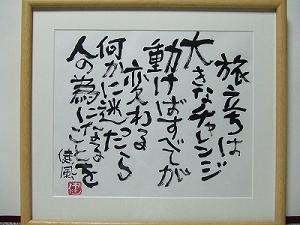 旅立ちは
大きなチャレンジ
動けばすべてが
変わる
何かに迷ったら
人の為になることを
健風